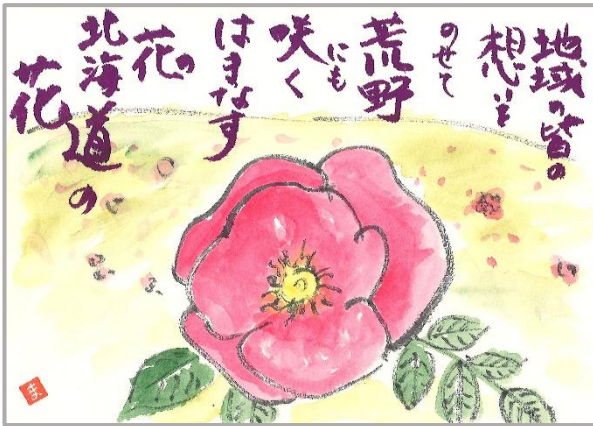 地域の皆の
想いを
のせて
荒野
にも
咲く
はまなす
の
花
北海道の
花